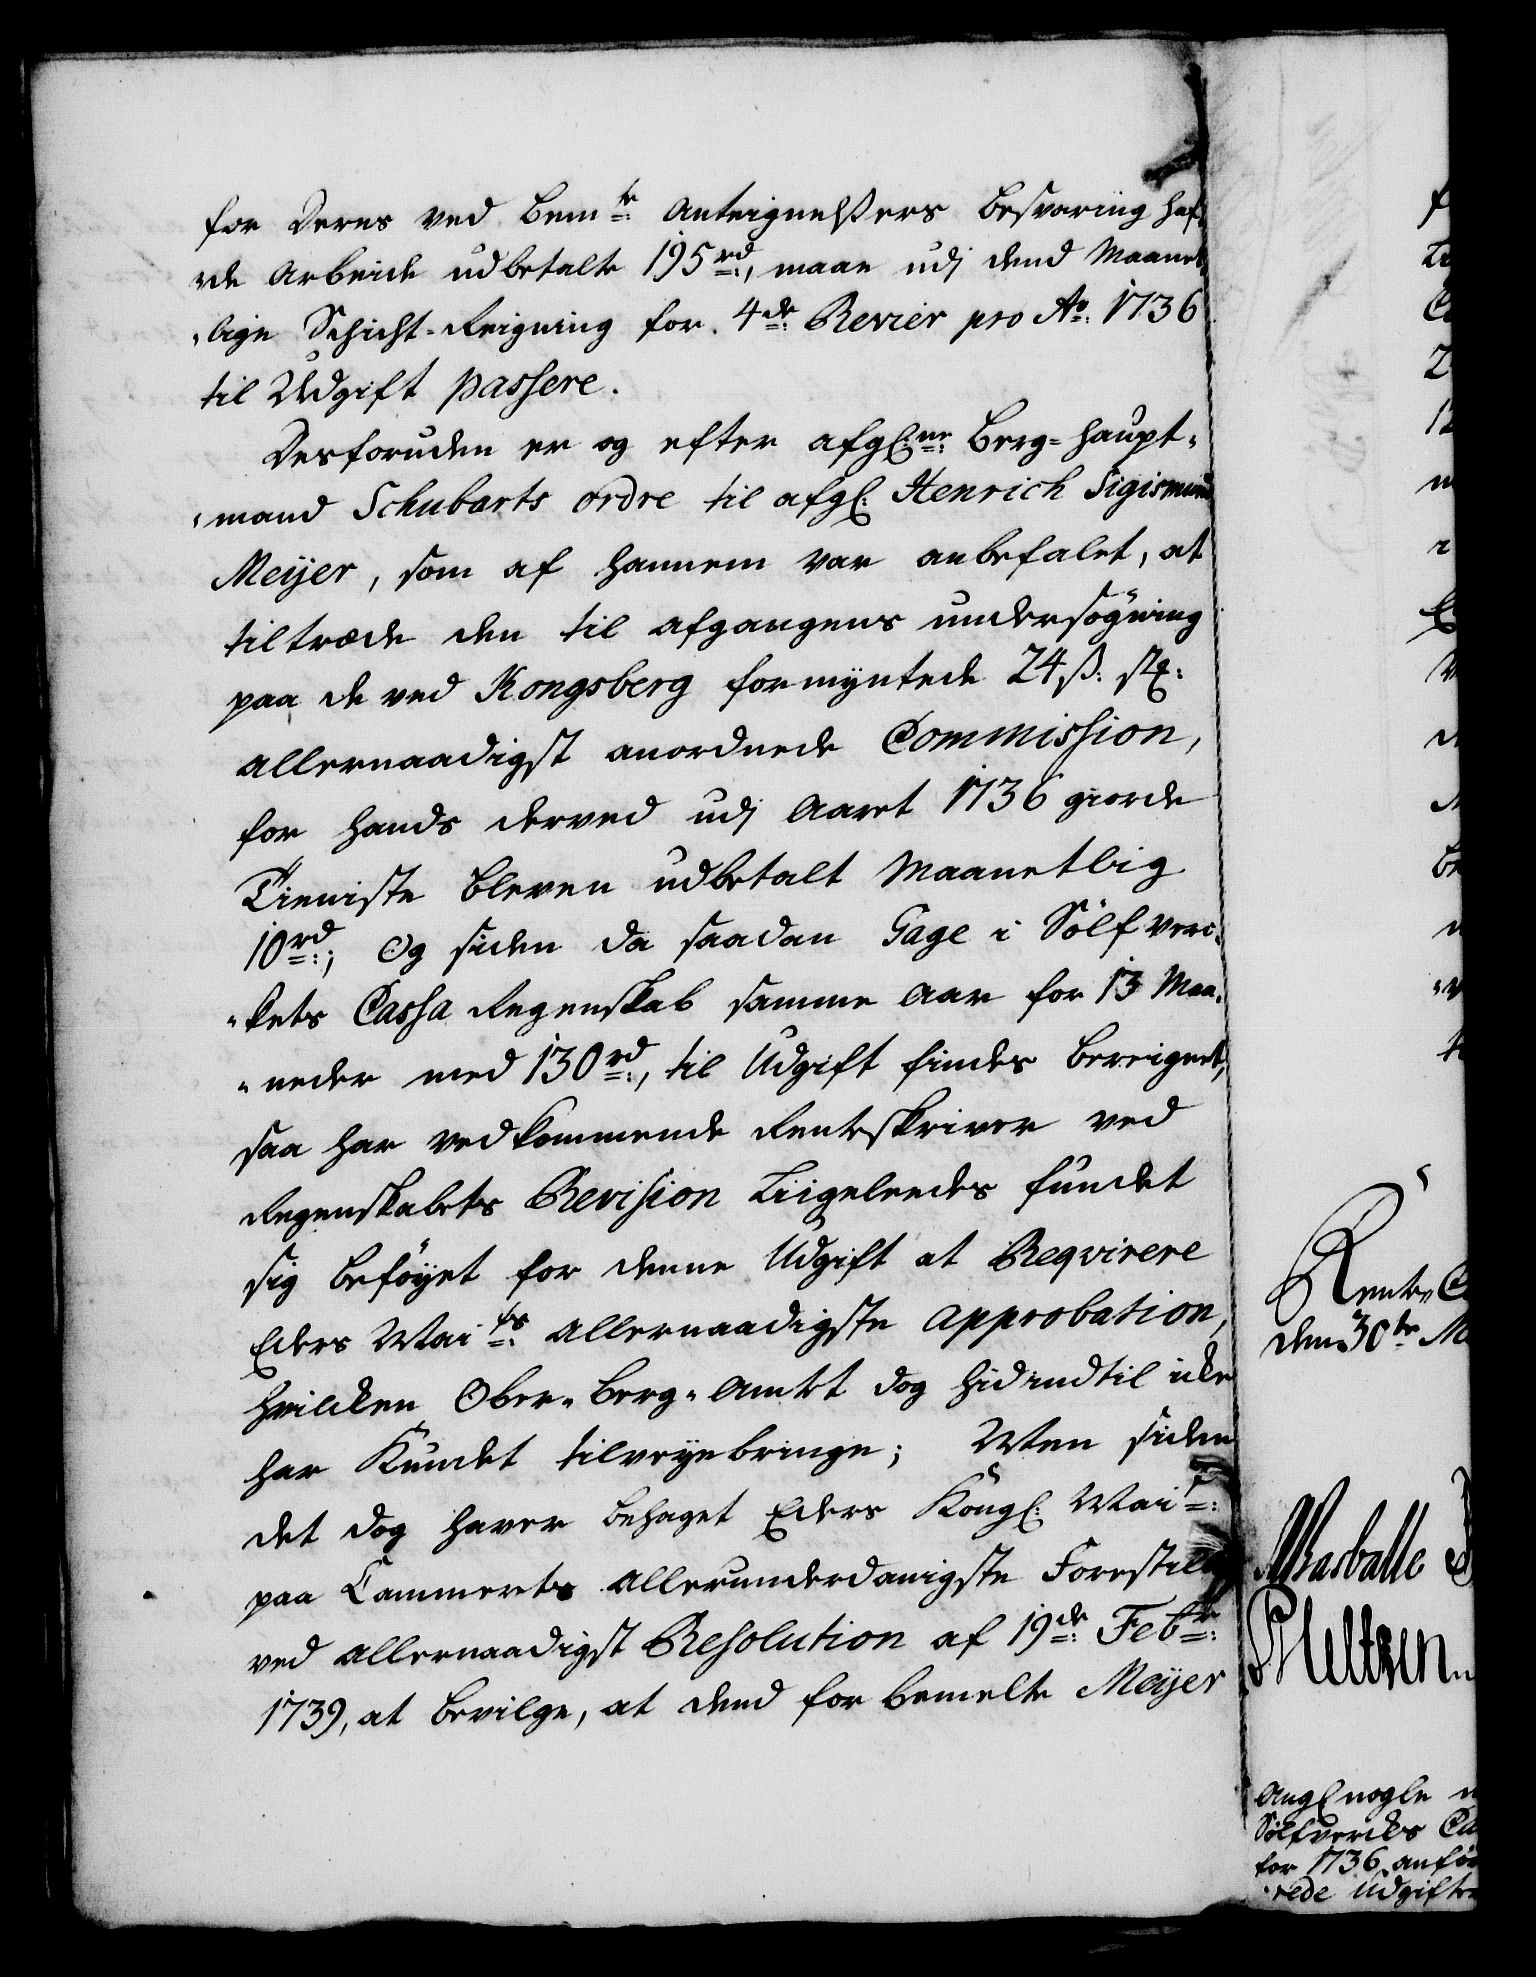 for deres ved bem:te Antegnelssers besvaring haf-
de Arbeide udbetalte 195 rd:, maae udj dend Maanet-
-lige Schicht-Reigning for 4de Revier pro Ao: 1736
til Udgift passere.
Desforuden er og efter afgl:ne Berg-Haupt-
-mand Schubarts ordre til afgl: Henrich Sigismund
Meijer, som af hannem var anbefalet, at
tiltræde den til afgangens undersøgning
paa de ved Kongsberg formyntede 24 ß: st:
allernaadigst anordnede Commission,
for hands derved udj Aaret 1736 giorde
Tieniste bleven udbetalt Maanetlig
10 rd:; Og siden da saadan Gage i Sølfver-
-kets Cassa Regenskab samme Aar for 13 Maa-
-neder med 130 rd:, til Udgift findes bereignet,
saa har vedkommende Renteskriver ved
Regenskabets Revision Liigeleedes fundet
sig beføyet for denne Udgift at Reqvirere
Eders Mai:ts allernaadigste Approbation,
hvilcken Ober-Berg-Amtet dog hidindtil icke
har kundet tilveyebringe; Men siden
det dog haver behaget Eders Kongl: Mai:t
paa Cammerets allerunderdanigste Forestill:
ved allernaadigst Resolution af 19de Febr:
1739, at bevilge, at dend for bemelte Meijer
Rente C
den 30te M
Angl nogle
Sølfverckes Ca
for 1736 anfø
-rede Udgifter